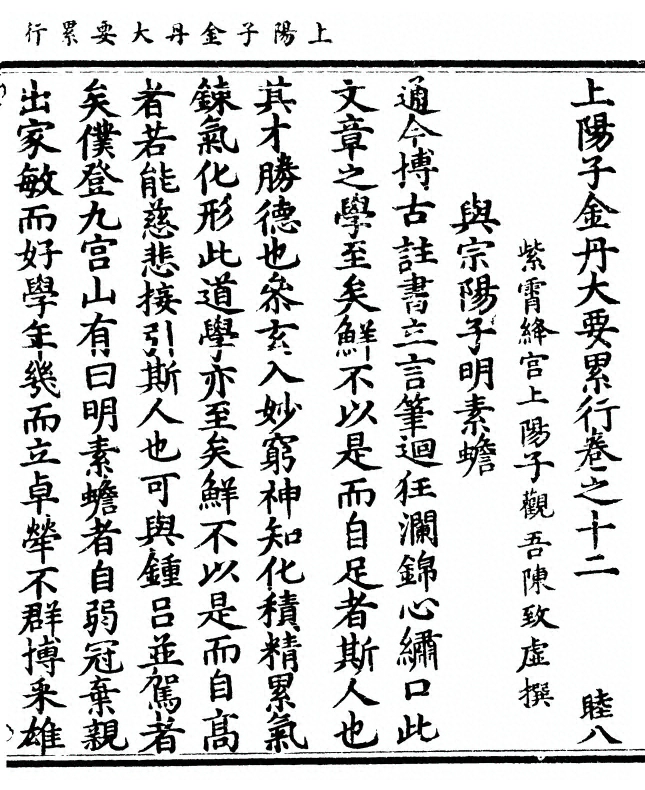 上陽子金丹大要累行
上陽子金丹大要累行卷之十二 睦八
紫霄絳宫上陽子觀吾陳致虚撰
與宗陽子明素蟾
通今博古註書立言筆迴狂瀾錦心繡口此
文章之學至矣鮮不以是而自足者斯人也
其才勝德也叅玄入妙窮神知化積精累氣
鍊氣化形此道學亦至矣鮮不以是而自高
者若能慈悲接引斯人也可與鍾吕並駕者
矣僕登九宫山有曰明素蟾者自弱冠棄親
出家敏而好學年幾而立卓犖不群博釆雄